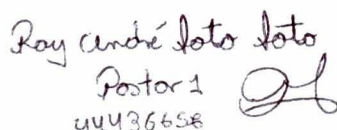 Roy André Soto Soto
Postor 1
44436658